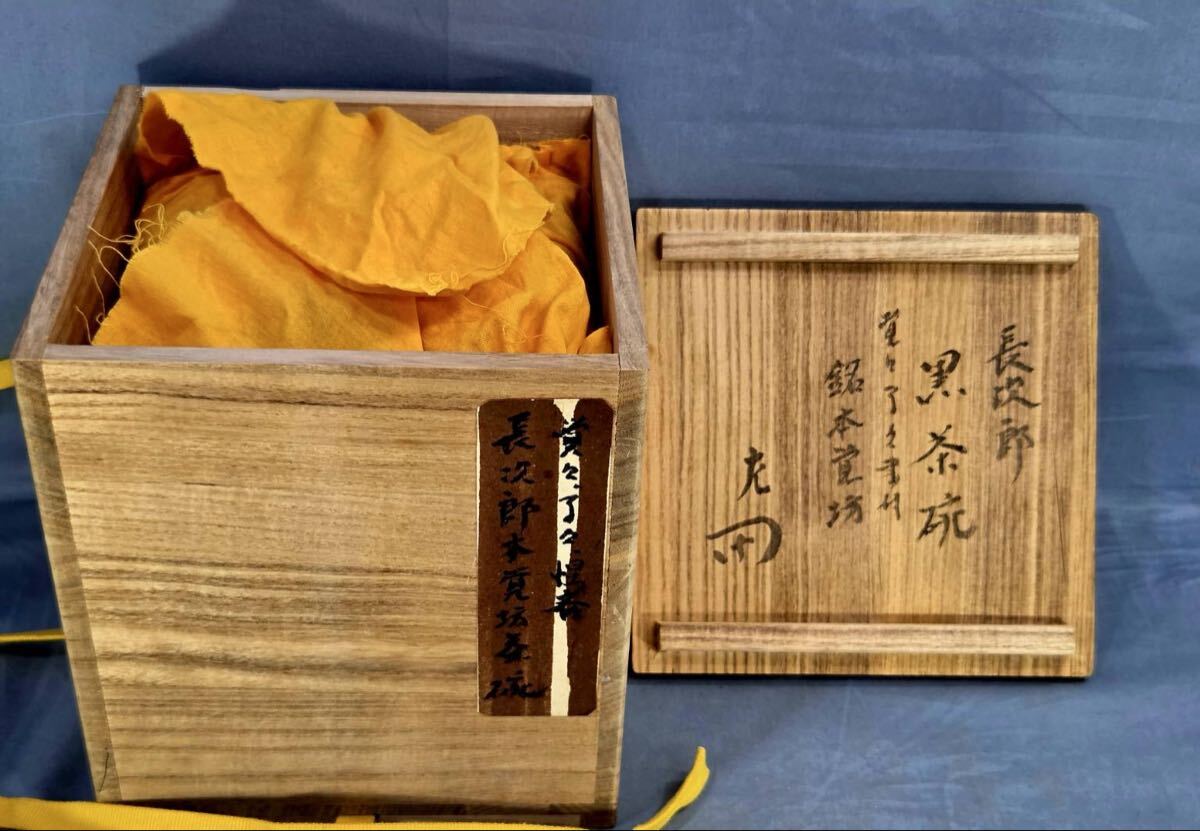 長次郎
黒茶碗
覚々了々書付
銘本覚坊
覚々了々
長次郎本覚坊茶碗